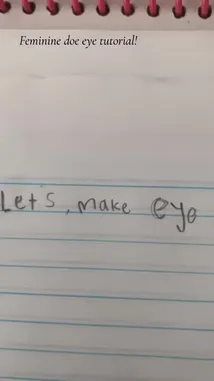 Feminine doe eye tutorial!
Let's, make eye